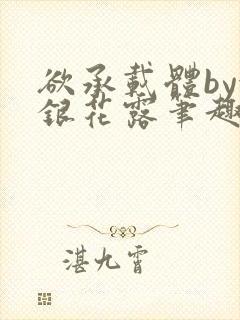 欲承载體by
銀花露筆趣
湛九霄